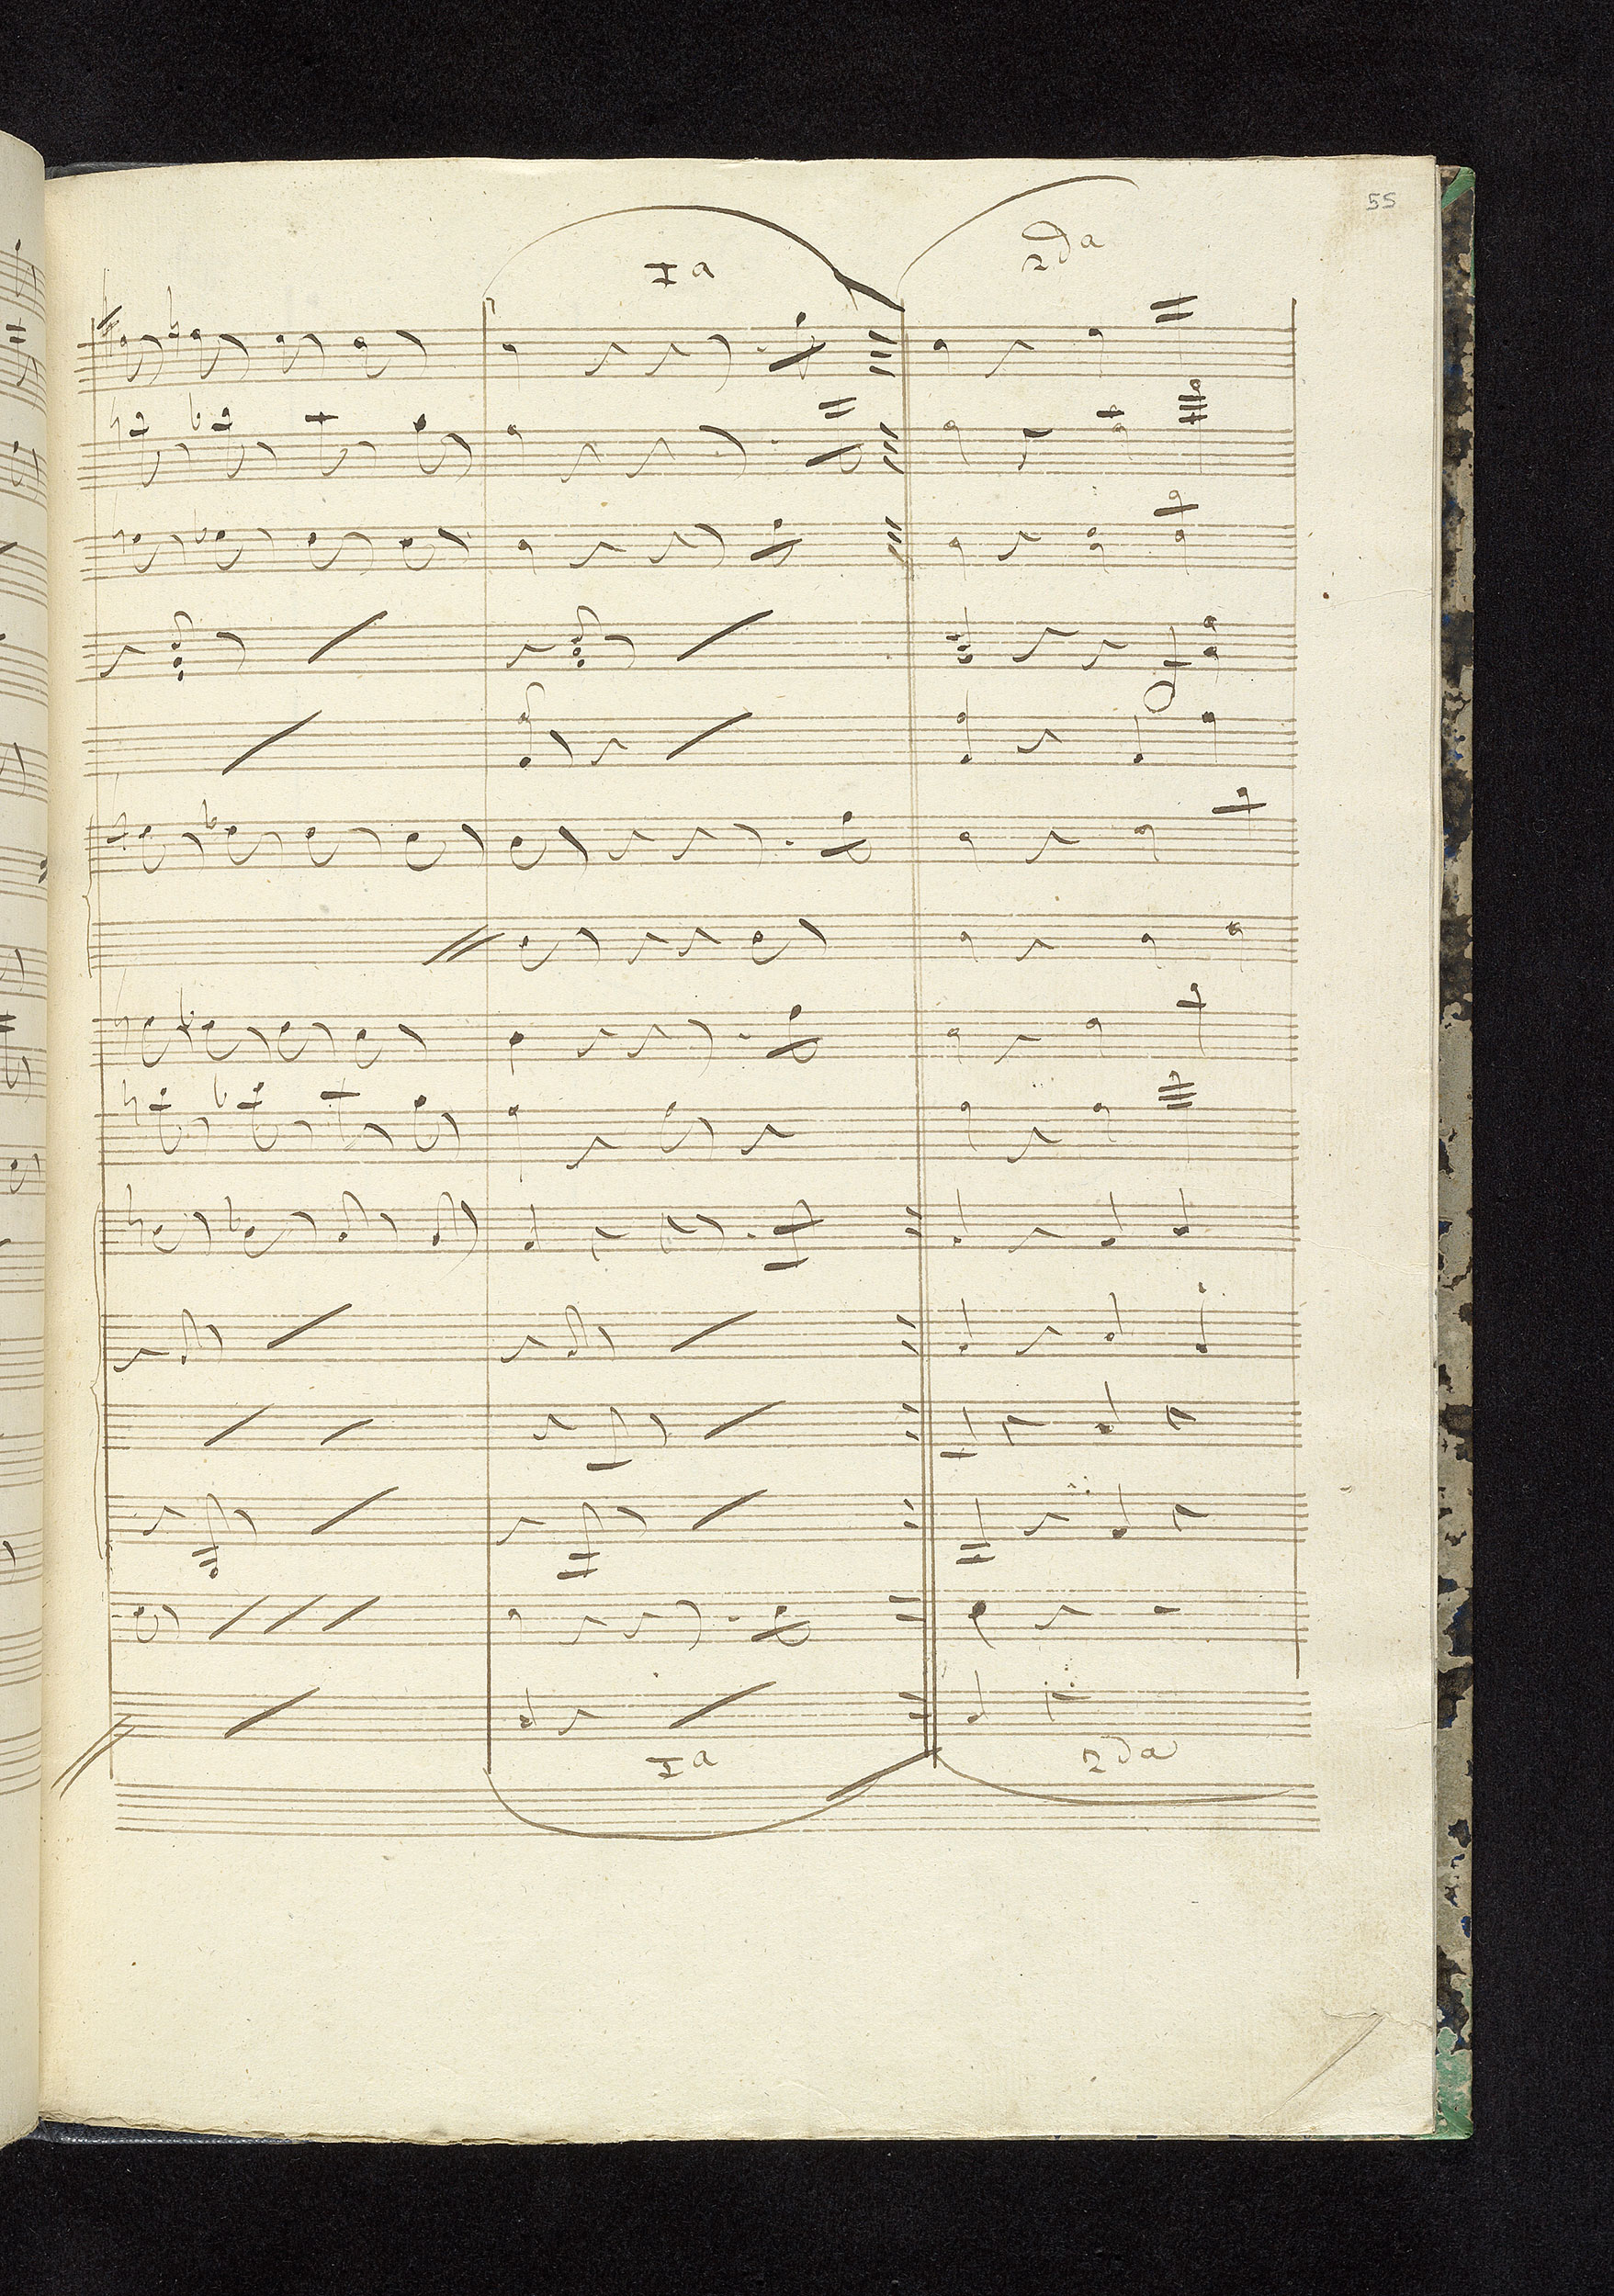 55
Ia
2da
Ia
2da